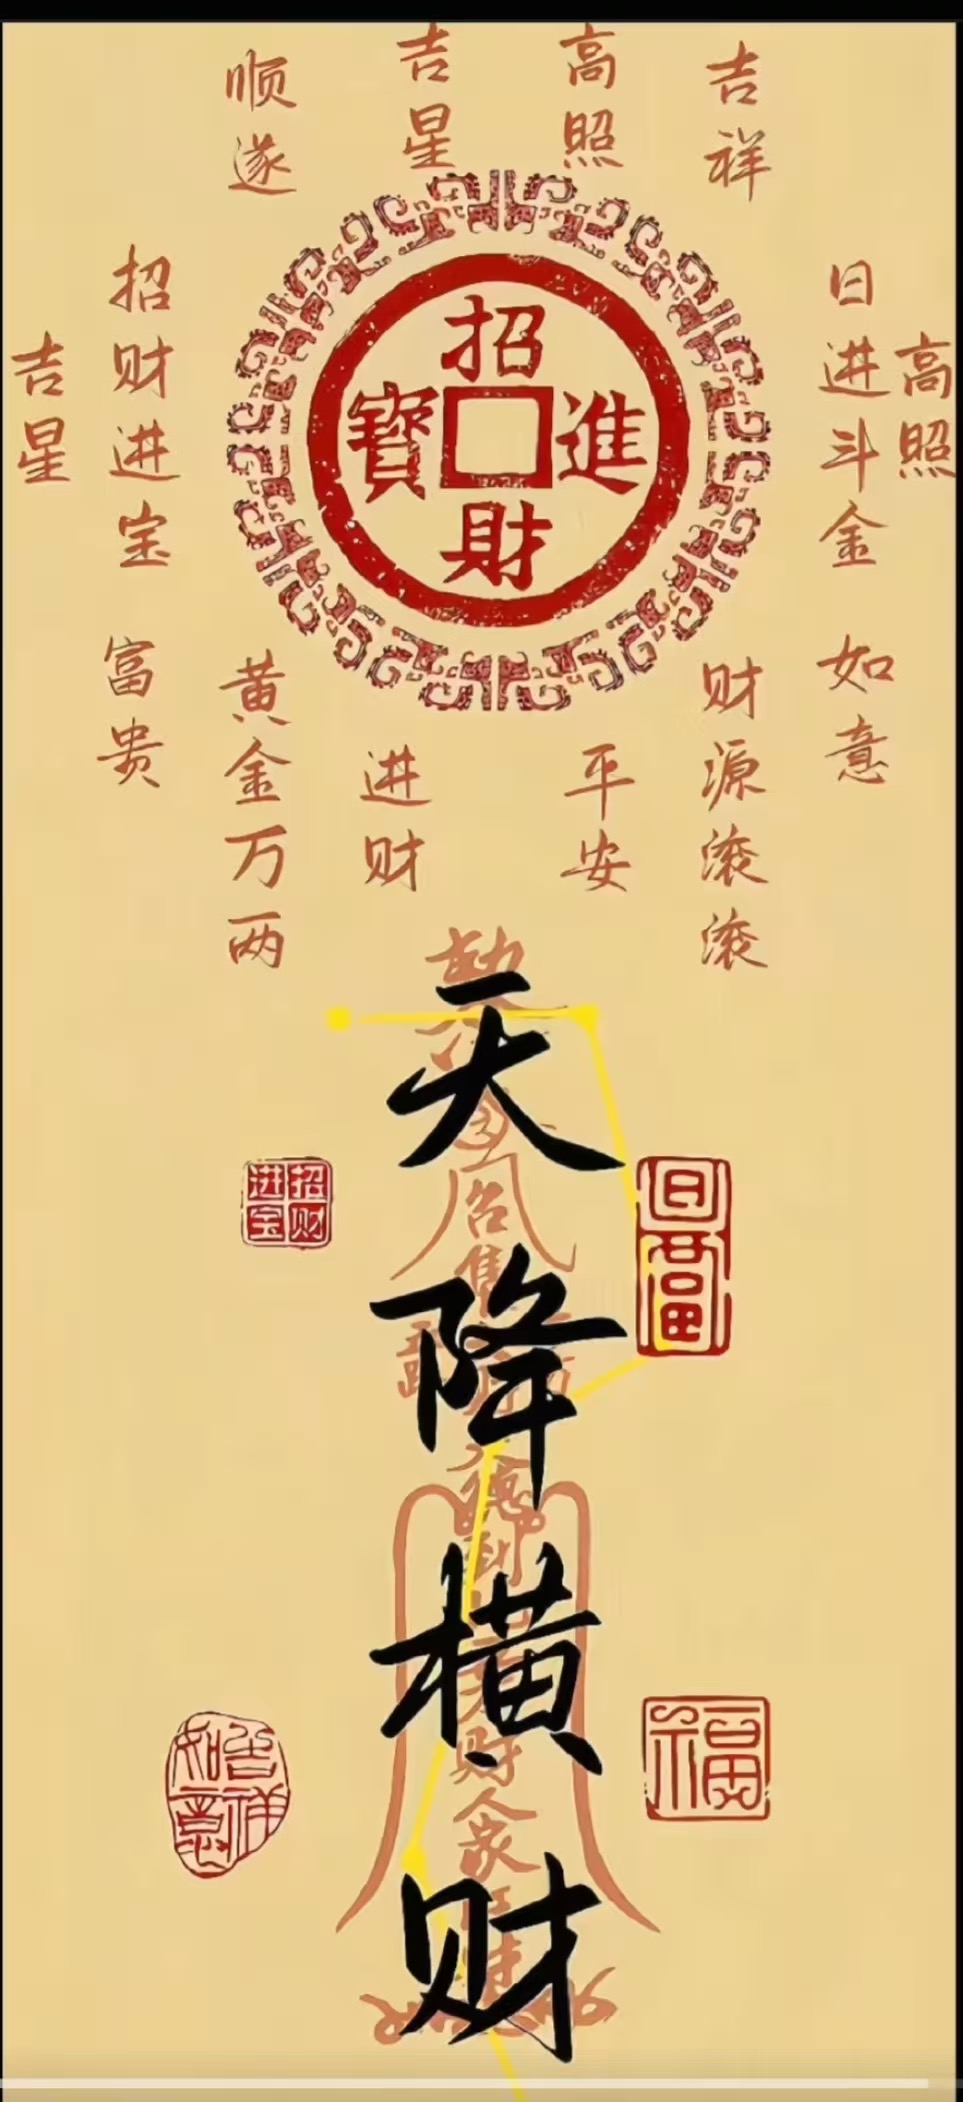 顺遂
吉星
高照
吉祥
招财进宝
吉星
日进斗金
高照
招財進寶
富贵
黄金万两
进财
平安
财源滚滚
如意
天降横财
招财进宝
日
富
吉祥如意
福